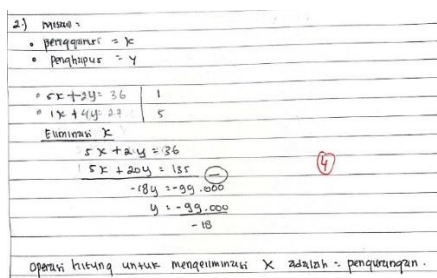 2.) misal =
• penggaris = x
• penghapus = y
• 5x + 2y = 36 | 1
• 1x + 4y = 27 | 5
Eliminasi x
5x + 2y = 36
5x + 20y = 135 -
-18y = -99.000
y = -99.000
-18
4
Operasi hitung untuk mengeliminasi x adalah = pengurangan.